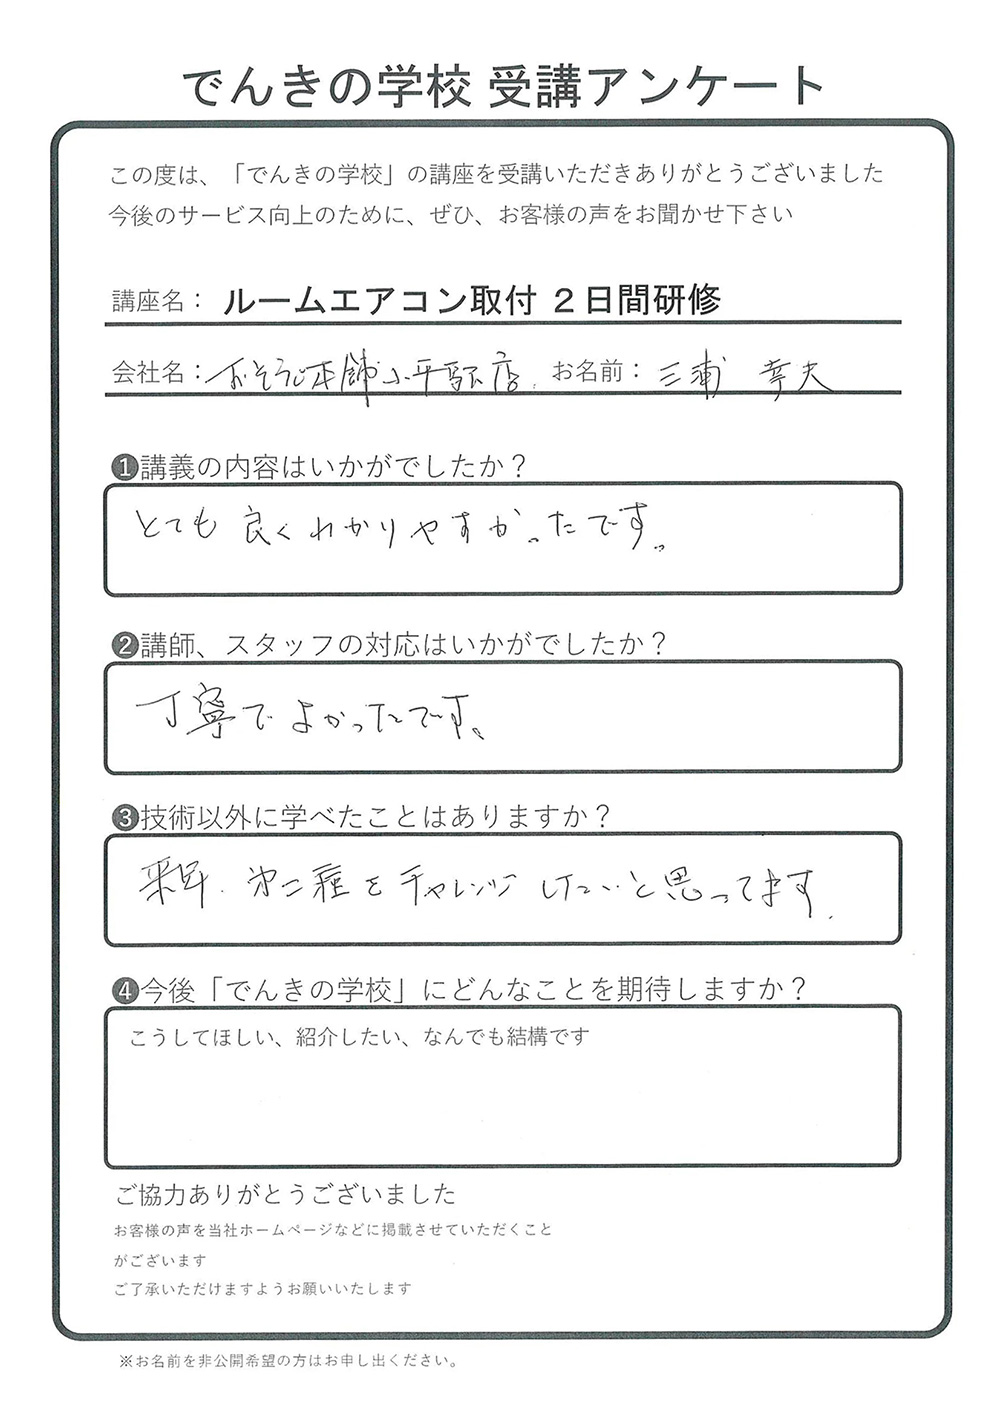 でんきの学校 受講アンケート
この度は、「でんきの学校」の講座を受講いただきありがとうございました
今後のサービス向上のために、ぜひ、お客様の声をお聞かせ下さい
講座名： ルームエアコン取付 ２日間研修
会社名：おそうじ本舗小平駅店 お名前：三浦 幸夫
❶講義の内容はいかがでしたか？
とても良くわかりやすかったです。
❷講師、スタッフの対応はいかがでしたか？
丁寧でよかったです。
❸技術以外に学べたことはありますか？
来年、第二種をチャレンジしたいと思ってます。
❹今後「でんきの学校」にどんなことを期待しますか？
こうしてほしい、紹介したい、なんでも結構です
ご協力ありがとうございました
お客様の声を当社ホームページなどに掲載させていただくこと
がございます
ご了承いただけますようお願いいたします
※お名前を非公開希望の方はお申し出ください。